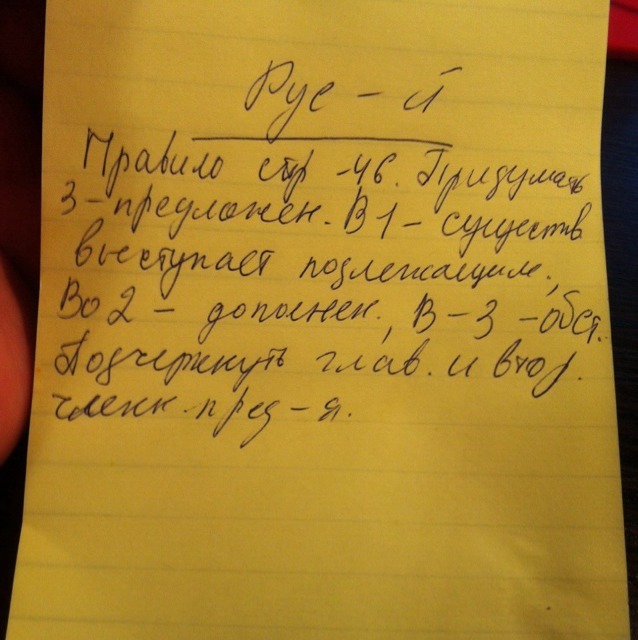 Рус - й
Правило стр -46. Придумать
3-предложен. В 1 - существ
выступает подлежащим.,
Во 2 - дополнен., В - 3 - обст.
Подчеркнуть глав. и втор.
член. пред-я.